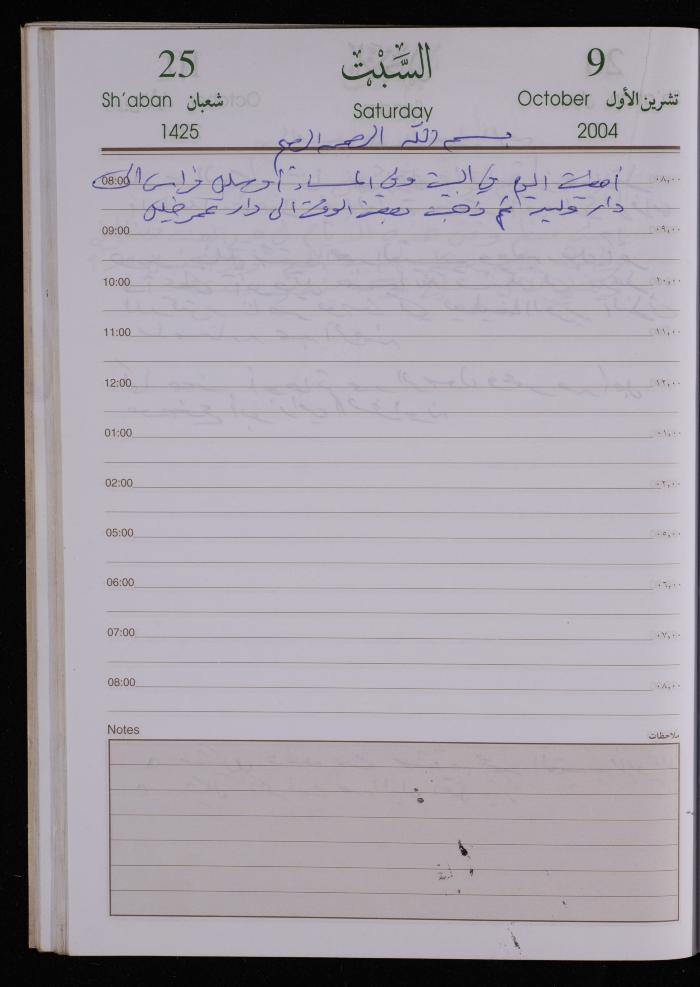 25 السَّبْت 9
Sh'aban شعبان Saturday October تشرين الأول
1425 2004
بسم الله الرحمن الرحيم
08:00 أمضيت اليوم في البيت وفي المساء أوصلني فراس الى ٠٨,٠٠
دار وليد ثم ذهبت بعض الوقت الى دار عمر خليل
09:00 ٠٩,٠٠
10:00 ١٠,٠٠
11:00 ١١,٠٠
12:00 ١٢,٠٠
01:00 ٠١,٠٠
02:00 ٠٢,٠٠
05:00 ٠٥,٠٠
06:00 ٠٦,٠٠
07:00 ٠٧,٠٠
08:00 ٠٨,٠٠
Notes ملاحظات